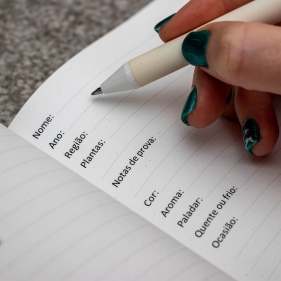 Nome:
Ano:
Região:
Plantas:
Notas de prova:
Cor:
Aroma:
Paladar:
Quente ou frio:
Ocasião: